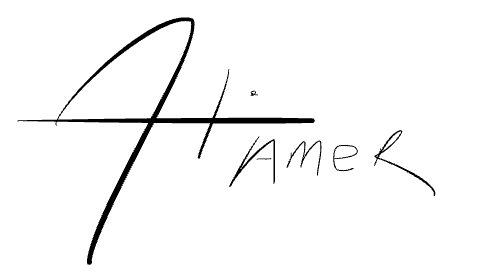 Ali
AMeR